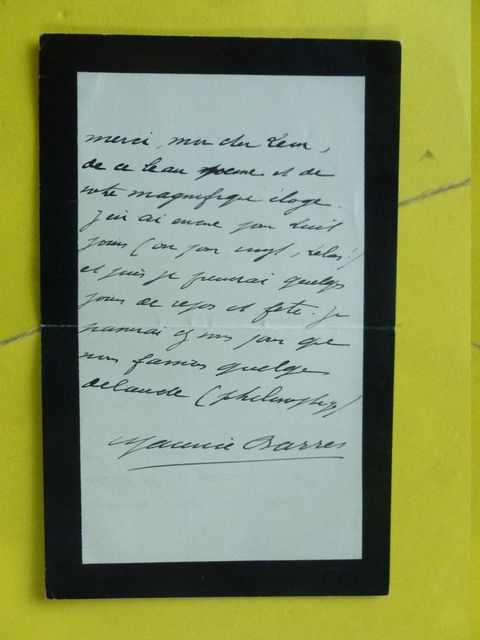 merci, mon cher Leon,
de ce beau poeme et de
votre magnifique éloge.
J'en ai encore pour huit
jours (ou pour vingt, helas!)
et puis je prendrai quelques
jours de repos et fete. Je
passerai chez vous pour que
nous fassions quelque
(philosophique)
Maurice Barrès